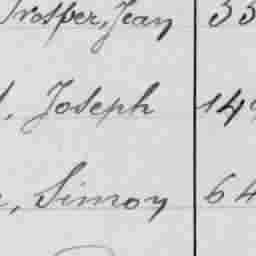 Prosper, Jean 33
, Joseph 149
, Simon 64